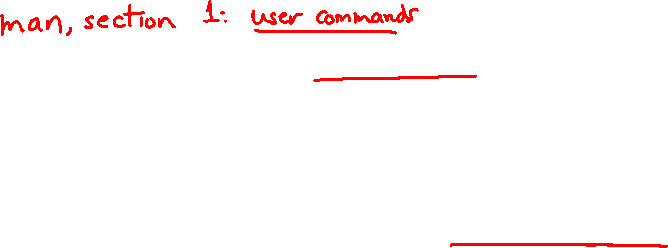 man, section 1: user commands